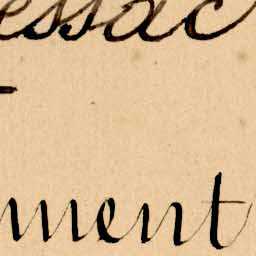 essac
ment